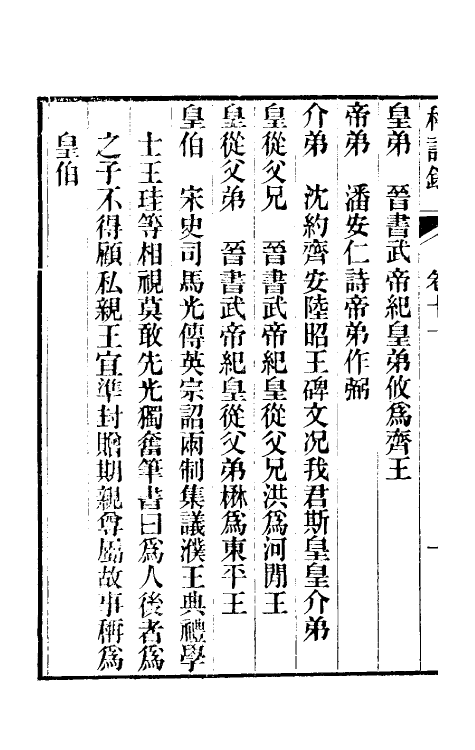 稱謂錄 卷十一 一
皇弟 晉書武帝紀皇弟攸爲齊王
帝弟 潘安仁詩帝弟作弼
介弟 沈約齊安陸昭王碑文况我君斯皇皇介弟
皇從父兄 晉書武帝紀皇從父兄洪爲河閒王
皇從父弟 晉書武帝紀皇從父弟楙爲東平王
皇伯 宋史司馬光傳英宗詔兩制集議濮王典禮學
士王珪等相視莫敢先光獨奮筆書曰爲人後者爲
之子不得顧私親王宜準封贈期親尊屬故事稱爲
皇伯